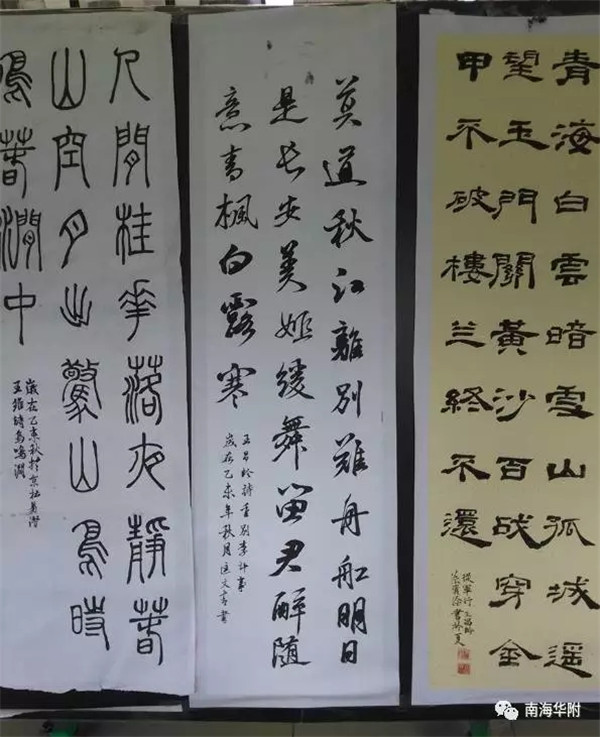 青海白雲暗雪山孤城遥
望玉門關黃沙百战穿金
甲不破樓兰終不還
從軍行王昌齡
莫道秋江離別难舟船明日
是长安美姬緩舞留君醉随
意青楓白露寒
王昌齡詩重别李评事
歲在乙未年秋月
人閒桂花落夜靜春
山空月出驚山鳥時
鳴春澗中
歲在乙未秋於京
王維詩鳥鳴澗
南海华附